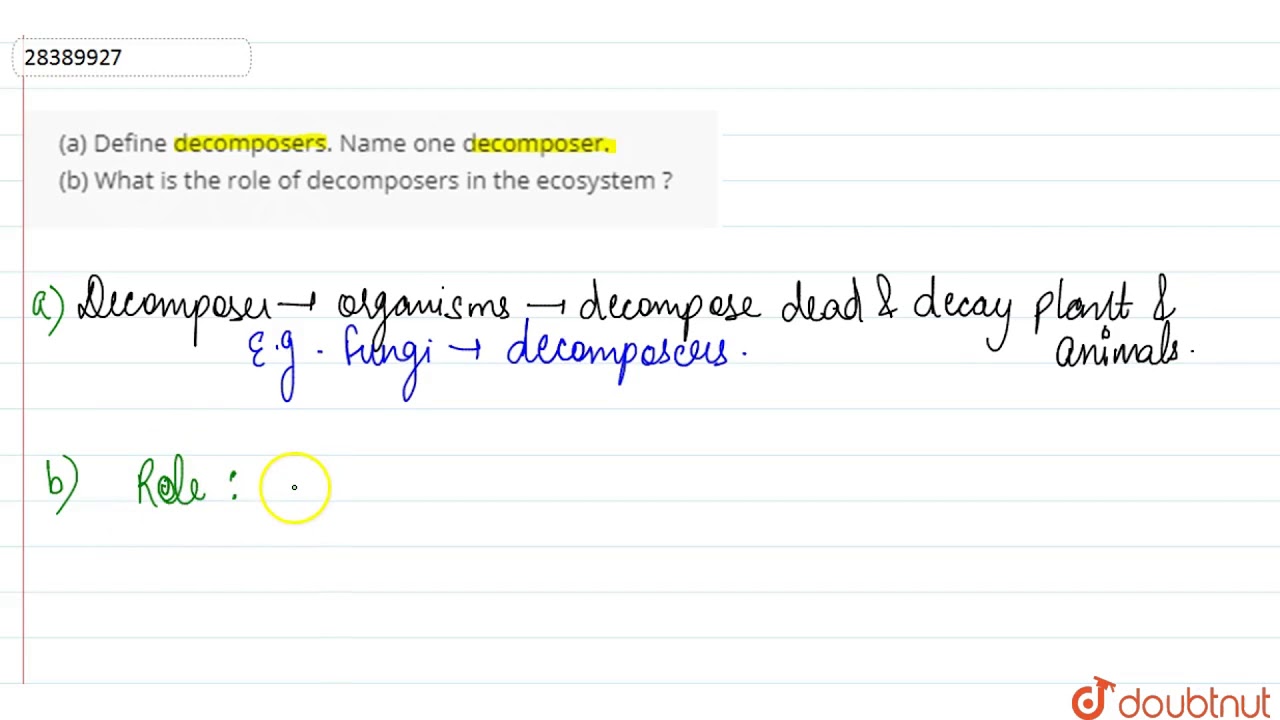 28389927
(a) Define decomposers. Name one decomposer.
(b) What is the role of decomposers in the ecosystem ?
a) Decomposer → organisms → decompose dead & decay plant &
animals.
E.g. Fungi → decomposers.
b) Role :
doubtnut